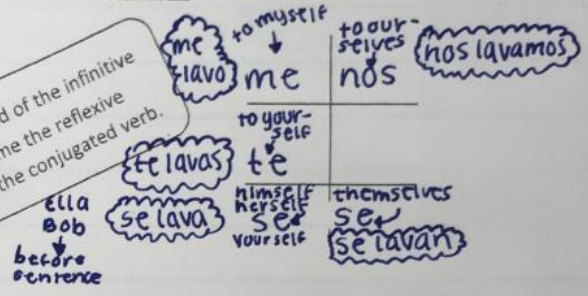 d of the infinitive
me the reflexive
the conjugated verb.
me
lavo
to myself
me
to our-
selves
nos
nos lavamos
te lavas
to your-
self
te
Ella
Bob
before
sentence
se lava
himself
herself
se
yourself
themselves
se
se lavan